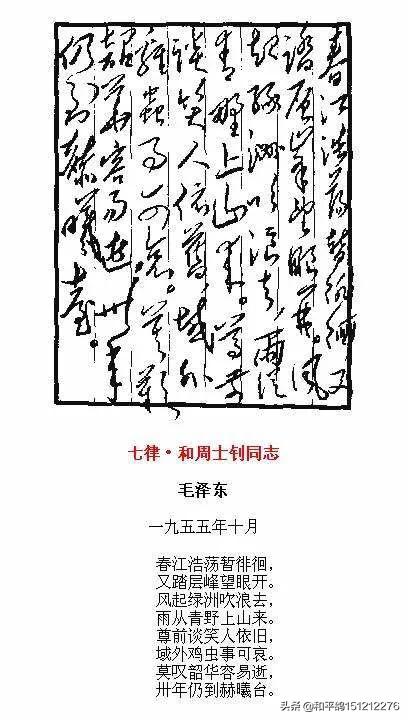 春江浩蕩暫徘徊又
踏层峯望眼开。风
起绿洲吹浪去,雨從
青野上山来。尊前
谈笑人依舊,域外
雞蟲事可哀。莫歎
韶華容易逝,卅年
仍到赫曦台。
七律·和周士钊同志
毛泽东
一九五五年十月
春江浩荡暂徘徊,
又踏层峰望眼开。
风起绿洲吹浪去,
雨从青野上山来。
尊前谈笑人依旧,
域外鸡虫事可哀。
莫叹韶华容易逝,
卅年仍到赫曦台。
头条 @和平鸽151212276